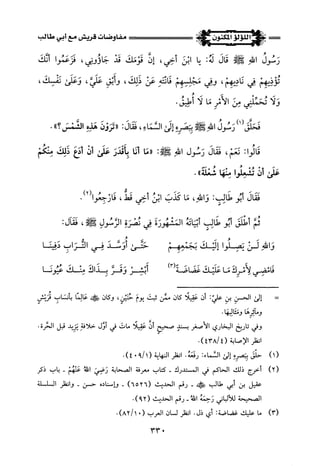 اللؤلؤ المكنون
مفاوضات قريش مع أبي طالب
رَسُولُ اللهِ ﷺ قَالَ لَهُ: يَا ابْنَ أَخِي، إِنَّ قَوْمَكَ قَدْ جَاؤُونِي، فَزَعَمُوا أَنَّكَ
تُؤْذِيهِمْ فِي نَادِيهِمْ، وفِي مَجْلِسِهِمْ فَانْتَهِ عَنْ ذَلِكَ، وأَبْقِ عَلَيَّ، وَعَلَى نَفْسِكَ،
وَلَا تُحَمِّلْنِي مِنَ الأَمْرِ مَا لَا أُطِيقُ.
فَحَلَّقَ(١) رَسُولُ اللهِ ﷺ بِبَصَرِهِ إِلَى السَّمَاءِ، فَقَالَ: «تَرَوْنَ هَذِهِ الشَّمْسَ؟».
قَالُوا: نَعَمْ، فَقَالَ رَسُولُ اللهِ ﷺ: «مَا أَنَا بِأَقْدَرَ عَلَى أَنْ أَدَعَ ذَلِكَ مِنْكُمْ
عَلَى أَنْ تُشْعِلُوا مِنْهَا شُعْلَةً».
فَقَالَ أَبُو طَالِبٍ: وَاللهِ، مَا كَذَبَ ابْنُ أَخِي قَطُّ، فَارْجِعُوا(٢).
ثُمَّ أَطْلَقَ أَبُو طَالِبٍ أَبْيَاتَهُ المَشْهُورَةَ فِي نُصْرَةِ الرَّسُولِ ﷺ، فَقَالَ:
وَاللهِ لَنْ يَصِلُوا إِلَيْكَ بِجَمْعِهِمْ حَتَّى أُوَسَّدَ فِي التُّرَابِ دَفِينَا
فَامْضِي لِأَمْرِكَ مَا عَلَيْكَ غَضَاضَةٌ(٣) أَبْشِرْ وَقَرَّ بِذَاكَ مِنْكَ عُيُونَا
= إلى الحسن بن علي: أن عقيلًا كان ممن ثبت يومَ حُنَيْنٍ، وكان ﷺ عَالِمًا بأنساب قُرَيْشٍ
ومآثِرِهَا ومَثَالِبِهَا.
وفي تاريخ البخاري الأصغر بسندٍ صحيح أنَّ عَقِيلًا ماتَ في أوَّل خلافةِ يَزِيد قبل الحَرَّة.
انظر الإصابة (٤/٤٣٨)
(١) حلَّق بِبَصَرِهِ إلى السَّماء: رَفَعَهُ. انظر النهاية (١/٤٠٩).
(٢) أخرج ذلك الحاكم في المستدرك - كتاب معرفة الصحابة رَضِيَ اللهُ عَنْهُمْ - باب ذكر
عقيل بن أبي طالب ﷺ - رقم الحديث (٦٥٢٦) - وإسناده حسن - وانظر السلسلة
الصحيحة للألباني رَحِمَهُ اللهُ - رقم الحديث (٩٢).
(٣) ما عليك غضاضة: أي ذل. انظر لسان العرب (١٠/٨٢).
٣٣٠